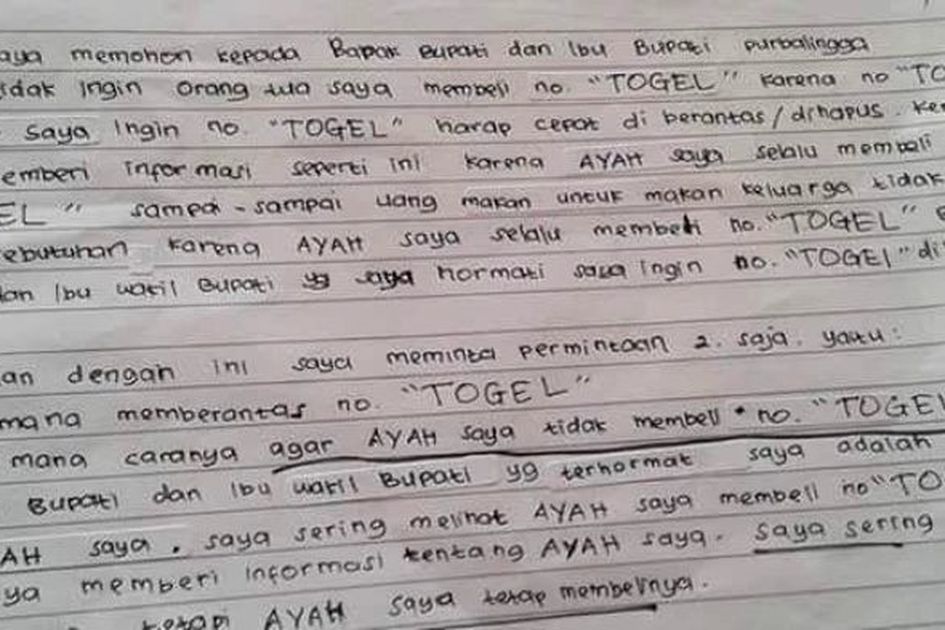 aya memohon kepada Bapak Bupati dan Ibu Bupati purbalingga
idak Ingin orang tua saya membeli no. "TOGEL" karena no "TO
saya Ingin no. "TOGEL" harap cepat di berantas/dihapus. Ke
emberi informasi seperti ini karena AYAH saya selalu membeli
EL" sampai-sampai uang makan untuk makan keluarga tidak
ebutuhan karena AYAH saya selalu membeli no. "TOGEL"
dan Ibu wakil Bupati yg saya hormati saya ingin no. "TOGEL" di
an dengan ini saya meminta permintaan 2. saja. yaitu:
mana memberantas no. "TOGEL"
mana caranya agar AYAH saya tidak membeli no. "TOGEL
Bupati dan Ibu wakil Bupati yg terhormat saya adalah
AH saya. saya sering melihat AYAH saya membeli no "TO
ya memberi informasi tentang AYAH saya. saya sering
tetapi AYAH saya tetap membelinya.